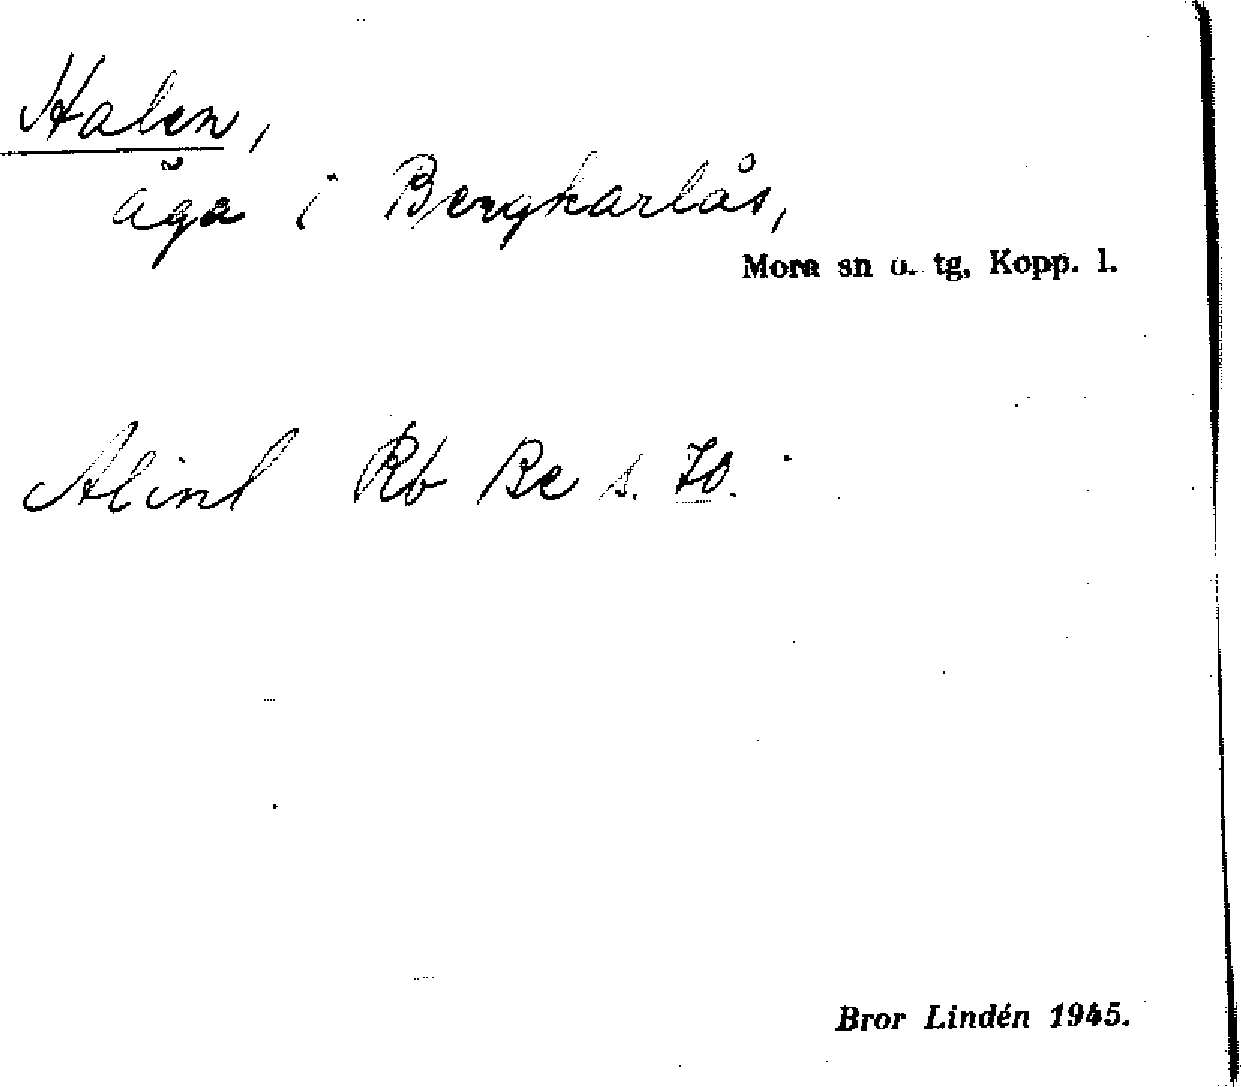 Halen,
äga i Bergkarlås,
Mora sn o. tg, Kopp. l.
Rb Be s. 70.
Bror Lindén 1945.